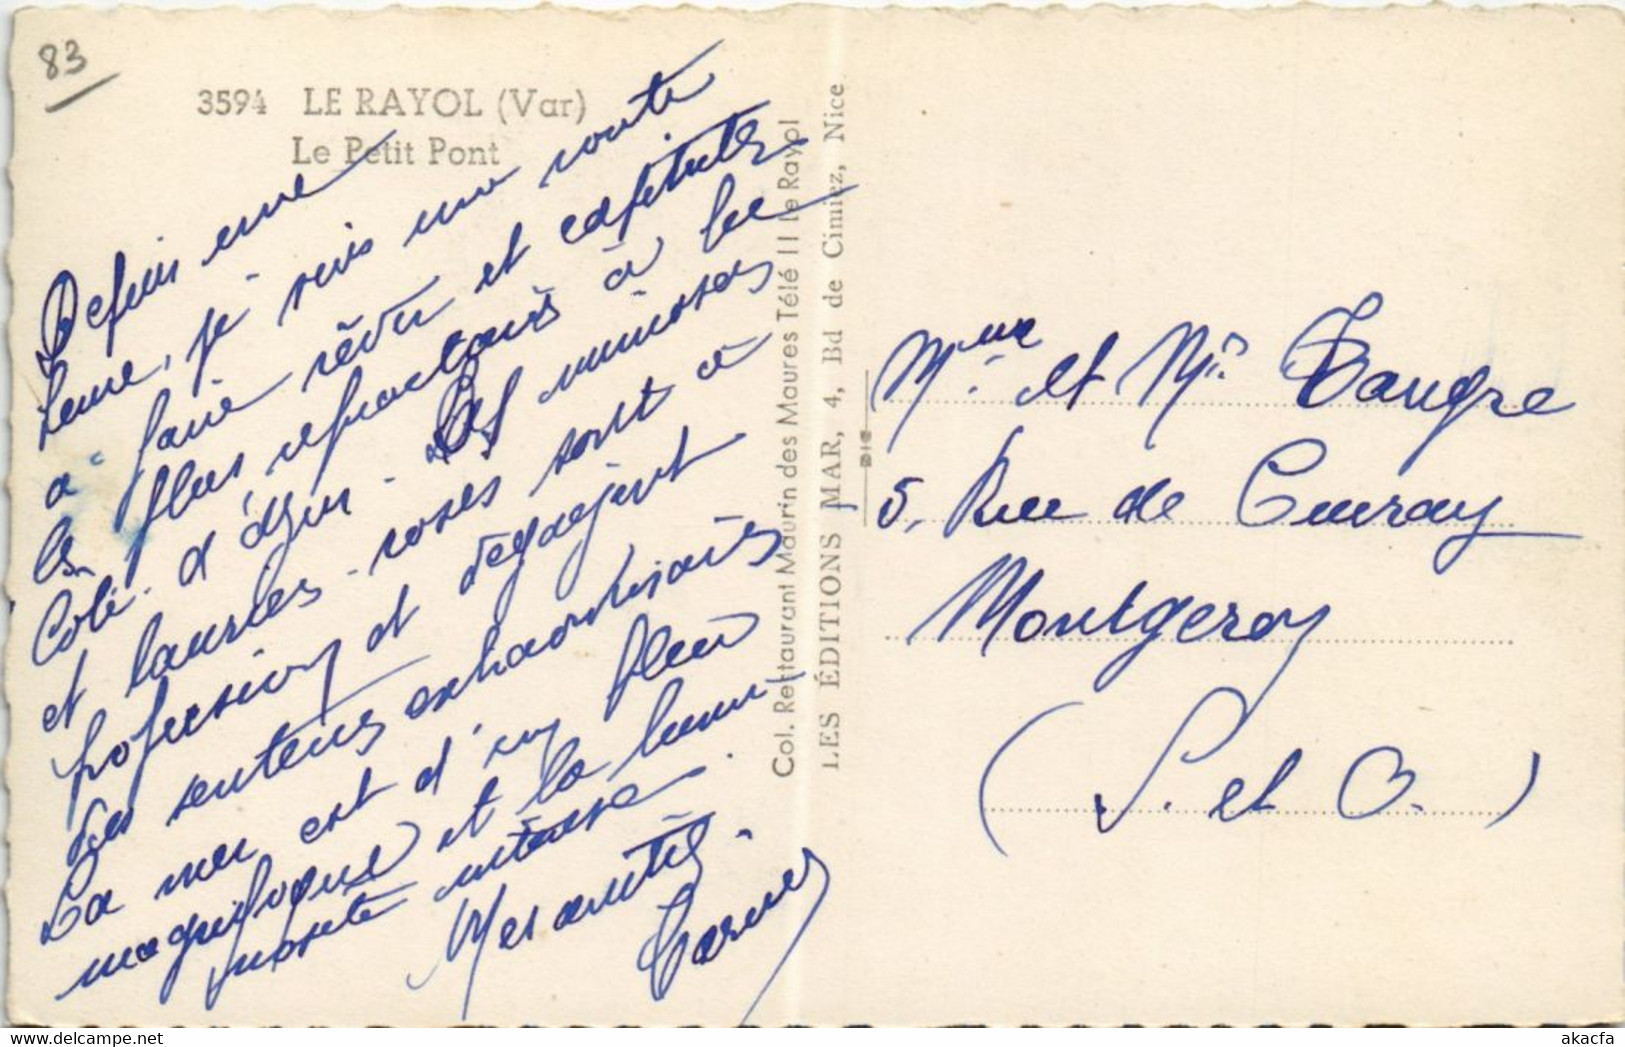 83
3594 LE RAYOL (Var)
Le Petit Pont
Depuis une
heure, je suis une route
à faire rêver et capituler
les plus réfractaires à la
Côte d'Azur. Les mimosas
et lauriers-roses sont à
profusion et dégagent
des senteurs extraordinaires
La mer est d'un bleu
magnifique et la lumi-
nosité intense.
Mes amitiés.
Col. Rettaurant Maurin des Maures Télé 11 le Rayol
LES ÉDITIONS MAR, 4, Bd de Cimiez, Nice
Mme et Mr
5, Rue de
Montgeron
(S. et O.)
akacfa